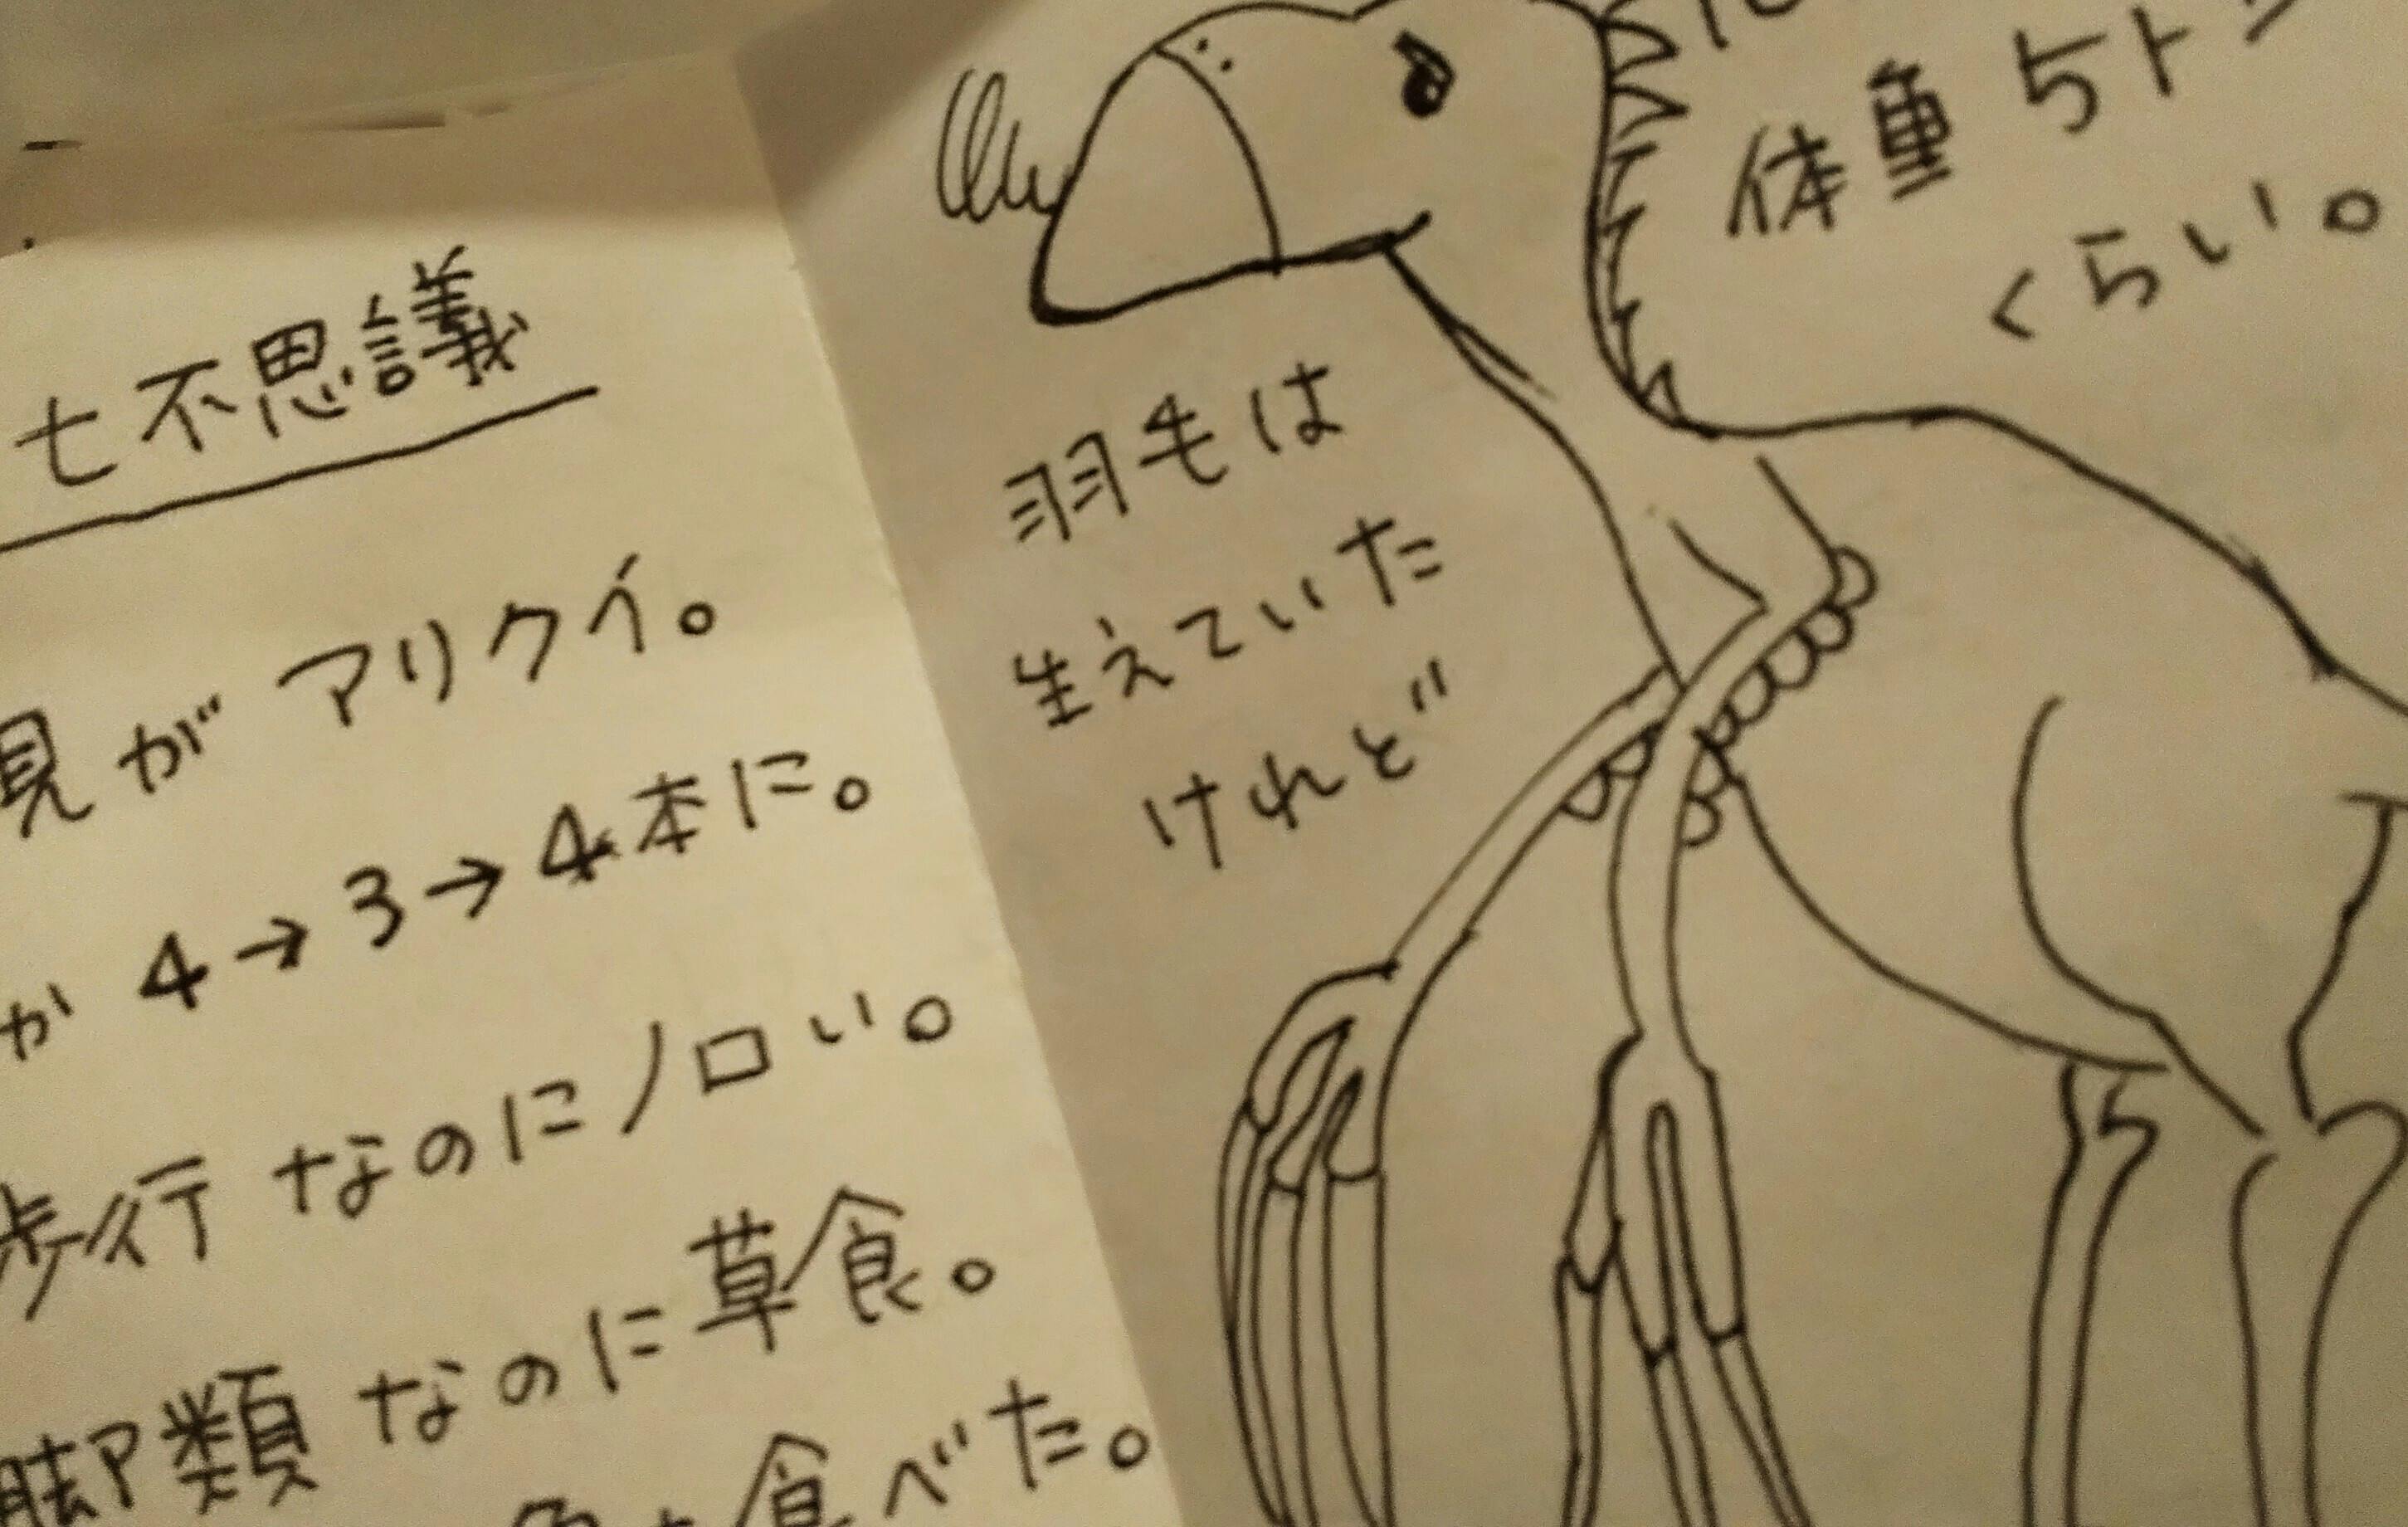 七不思議
見がアリクイ。
が4→3→4本に。
歩行なのにノロい。
脚類なのに草食。
食べた。
体重5トン
くらい。
羽毛は
生えていた
けれど